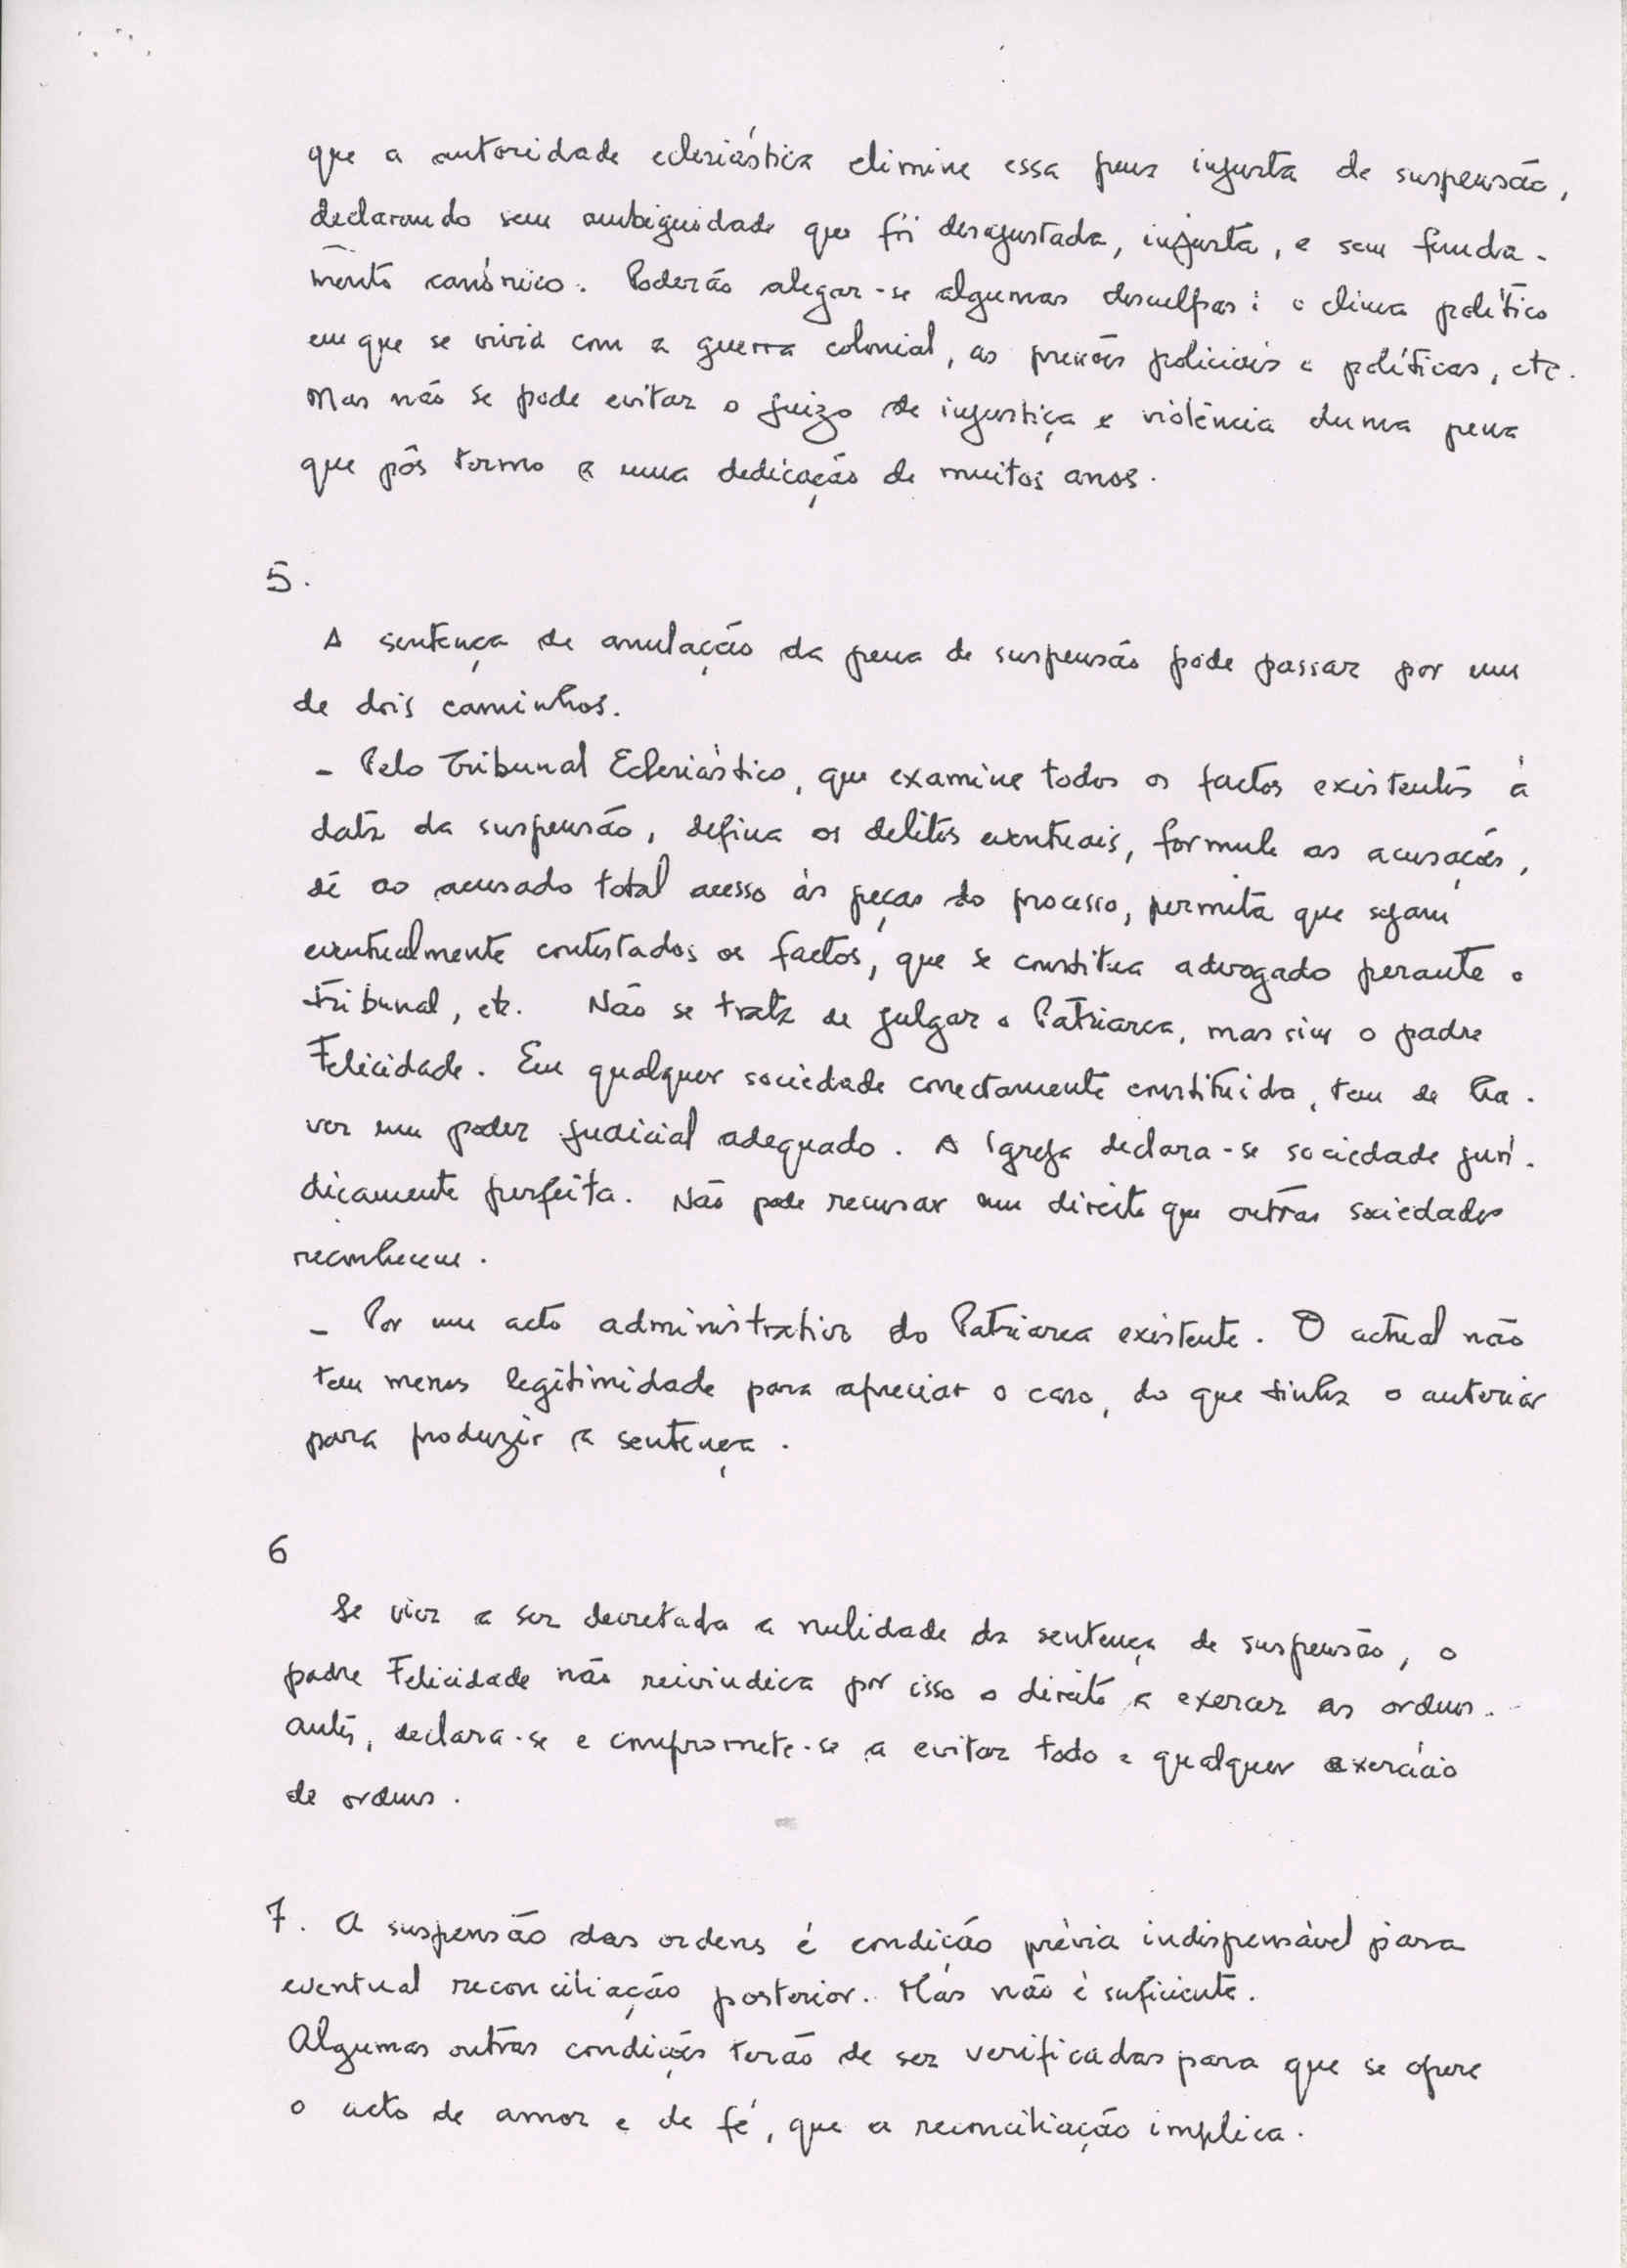 que a autoridade eclesiástica elimine essa pena injusta de suspensão,
declarando sem ambiguidade que foi desajustada, injusta, e sem funda-
mento canónico. Poderão alegar-se algumas desculpas: o clima político
em que se vivia com a guerra colonial, as pressões policiais e políticas, etc.
Mas não se pode evitar o juizo de injustiça e violência duma pena
que pôs termo a uma dedicação de muitos anos.
5.
A sentença de anulação da pena de suspensão pode passar por um
de dois caminhos.
- Pelo Tribunal Eclesiástico, que examine todos os factos existentes à
data da suspensão, defina os delitos eventuais, formule as acusações,
dê ao acusado total acesso às peças do processo, permita que sejam
eventualmente contestados os factos, que se constitua advogado perante o
tribunal, etc. Não se trata de julgar o Patriarca, mas sim o padre
Felicidade. Em qualquer sociedade correctamente constituida, tem de ha-
ver um poder judicial adequado. A Igreja declara-se sociedade juri-
dicamente perfeita. Não pode recusar um direito que outras sociedades
reconhecem.
- Por um acto administrativo do Patriarca existente. O actual não
tem menos legitimidade para apreciar o caso, do que tinha o anterior
para produzir a sentença.
6
Se vier a ser decretada a nulidade da sentença de suspensão, o
padre Felicidade não reivindica por isso o direito a exercer as ordens.
Antes, declara-se e compromete-se a evitar todo e qualquer exercício
de ordens.
7. A suspensão das ordens é condição prévia indispensável para
eventual reconciliação posterior. Mas não é suficiente.
Algumas outras condições terão de ser verificadas para que se opere
o acto de amor e de fé, que a reconciliação implica.